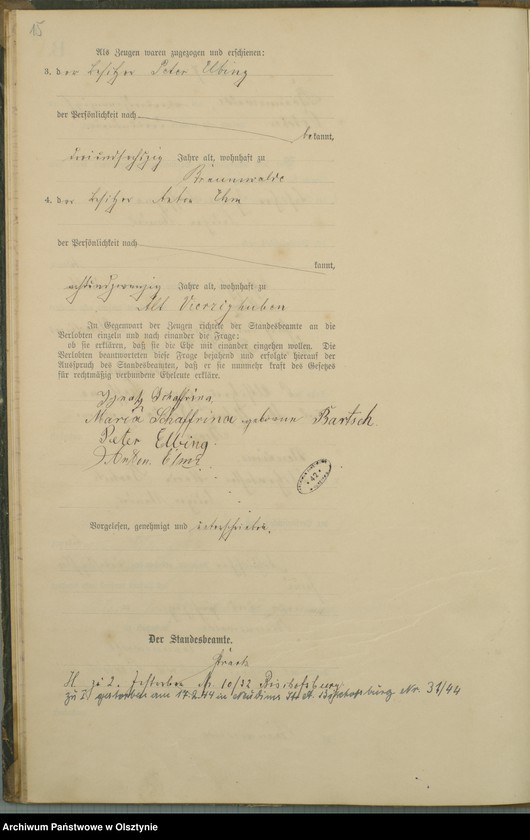 15
Als Zeugen waren zugezogen und erschienen:
3. der Besitzer Peter Elbing
der Persönlichkeit nach
bekannt,
dreiundsechzig Jahre alt, wohnhaft zu
Braunswalde
4. der Besitzer Anton
der Persönlichkeit nach
kannt,
achtundzwanzig Jahre alt, wohnhaft zu
Alt Vierzighuben
In Gegenwart der Zeugen richtete der Standesbeamte an die
Verlobten einzeln und nach einander die Frage:
ob sie erklären, daß sie die Ehe mit einander eingehen wollen. Die
Verlobten beantworteten diese Frage bejahend und erfolgte hierauf der
Ausspruch des Standesbeamten, daß er sie nunmehr kraft des Gesetzes
für rechtmäßig verbundene Eheleute erkläre.
Ignatz Schaffrina
Maria Schaffrina geborene Bartsch
Peter Elbing
Anton
Vorgelesen, genehmigt und unterschrieben.
Der Standesbeamte.
H. zu 2. Gestorben Nr. 10/22 Bischofsburg
zu 1. gestorben am 17.2.44 in St. A. Bischofsburg Nr. 31/44
Archiwum Państwowe w Olsztynie